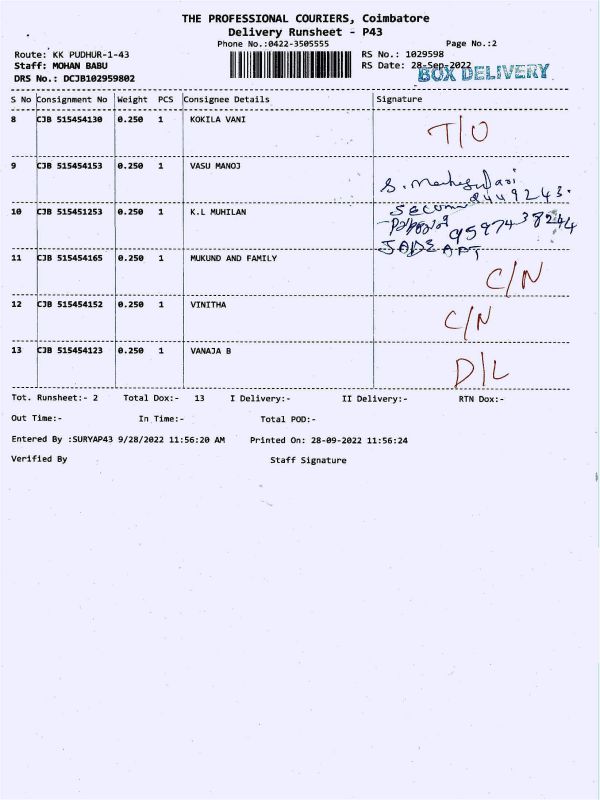 THE PROFESSIONAL COURIERS, Coimbatore
Delivery Runsheet - P43
Phone No.:0422-3505555 Page No.:2
Route: KK PUDHUR-1-43 RS No.: 1029598
Staff: MOHAN BABU RS Date: 28-Sep-2022
BOX DELIVERY
DRS No.: DCJB102959802
S No Consignment No Weight PCS Consignee Details Signature
8 CJB 515454130 0.250 1 KOKILA VANI
T/O
9 CJB 515454153 0.250 1 VASU MANOJ
10 CJB 515451253 0.250 1 K.L MUHILAN
JADE APT
11 CJB 515454165 0.250 1 MUKUND AND FAMILY
C/N
12 CJB 515454152 0.250 1 VINITHA
C/N
13 CJB 515454123 0.250 1 VANAJA B
D/L
Tot. Runsheet:- 2 Total Dox:- 13 I Delivery:- II Delivery:- RTN Dox:-
Out Time:- In Time:- Total POD:-
Entered By :SURYAP43 9/28/2022 11:56:20 AM Printed On: 28-09-2022 11:56:24
Verified By Staff Signature